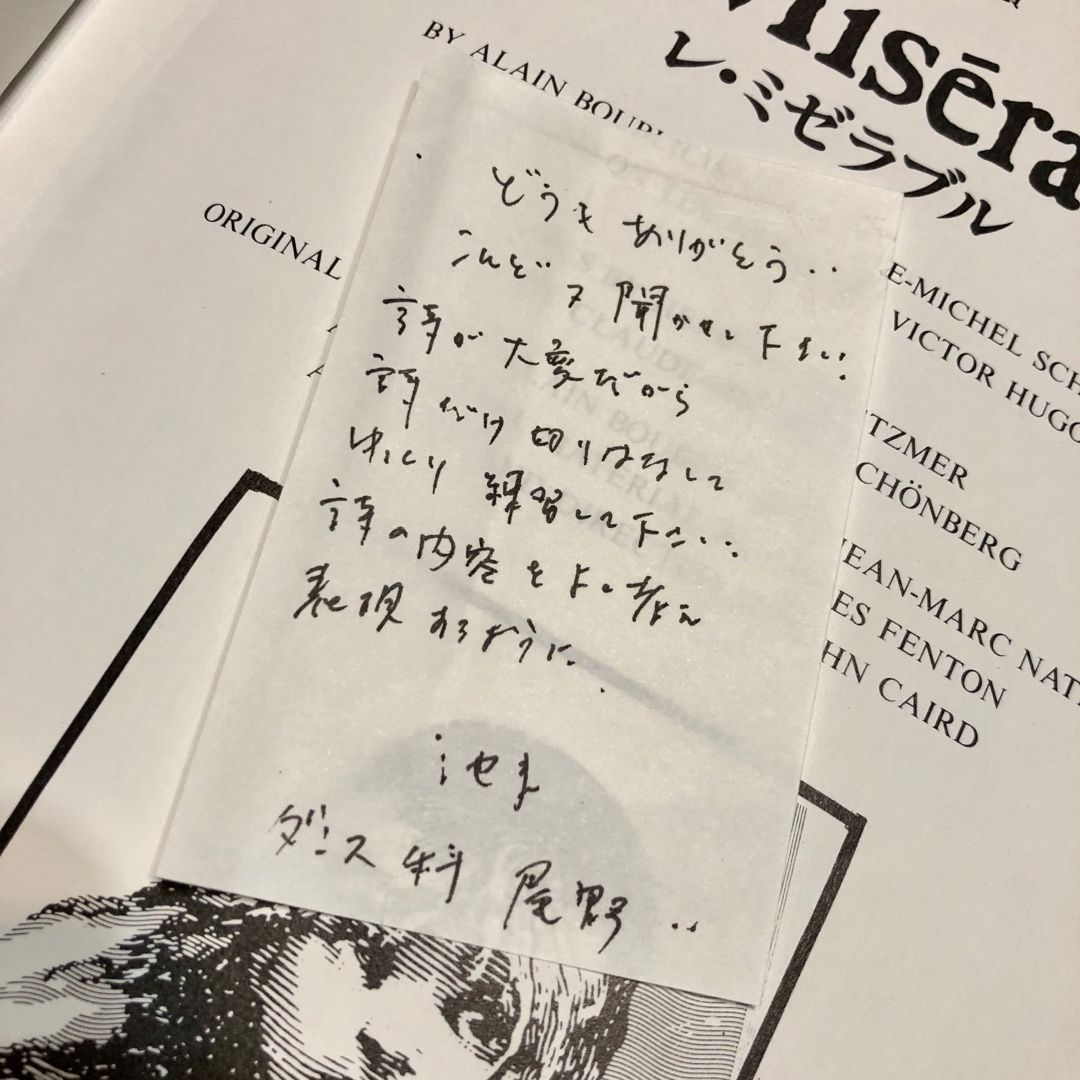 Miséra
レ・ミゼラブル
BY ALAIN BOUBL
E-MICHEL SCH
VICTOR HUGO
ORIGINAL
TZMER
CHÖNBERG
JEAN-MARC NAT
ES FENTON
HN CAIRD
どうもありがとう‥
こんど又聞かせて下さい.
詩が大変だから
詩だけ切りはなして
ゆっくり練習して下さい‥
詩の内容をよく考え
表現するように.
ダンス科 尾野‥